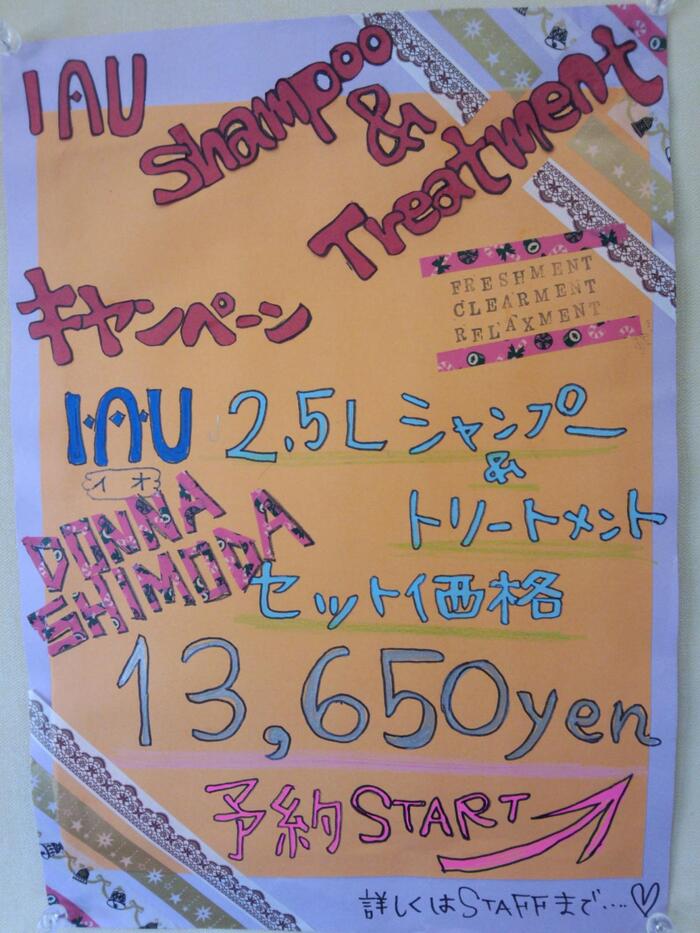 IAU
Shampoo
&
Treatment
キャンペーン
FRESHMENT
CLEARMENT
RELAXMENT
IAU 2.5L シャンプー
イオ
&
トリートメント
DONNA
SHIMODA
セット価格
13,650yen
予約START
詳しくはSTAFFまで....♡